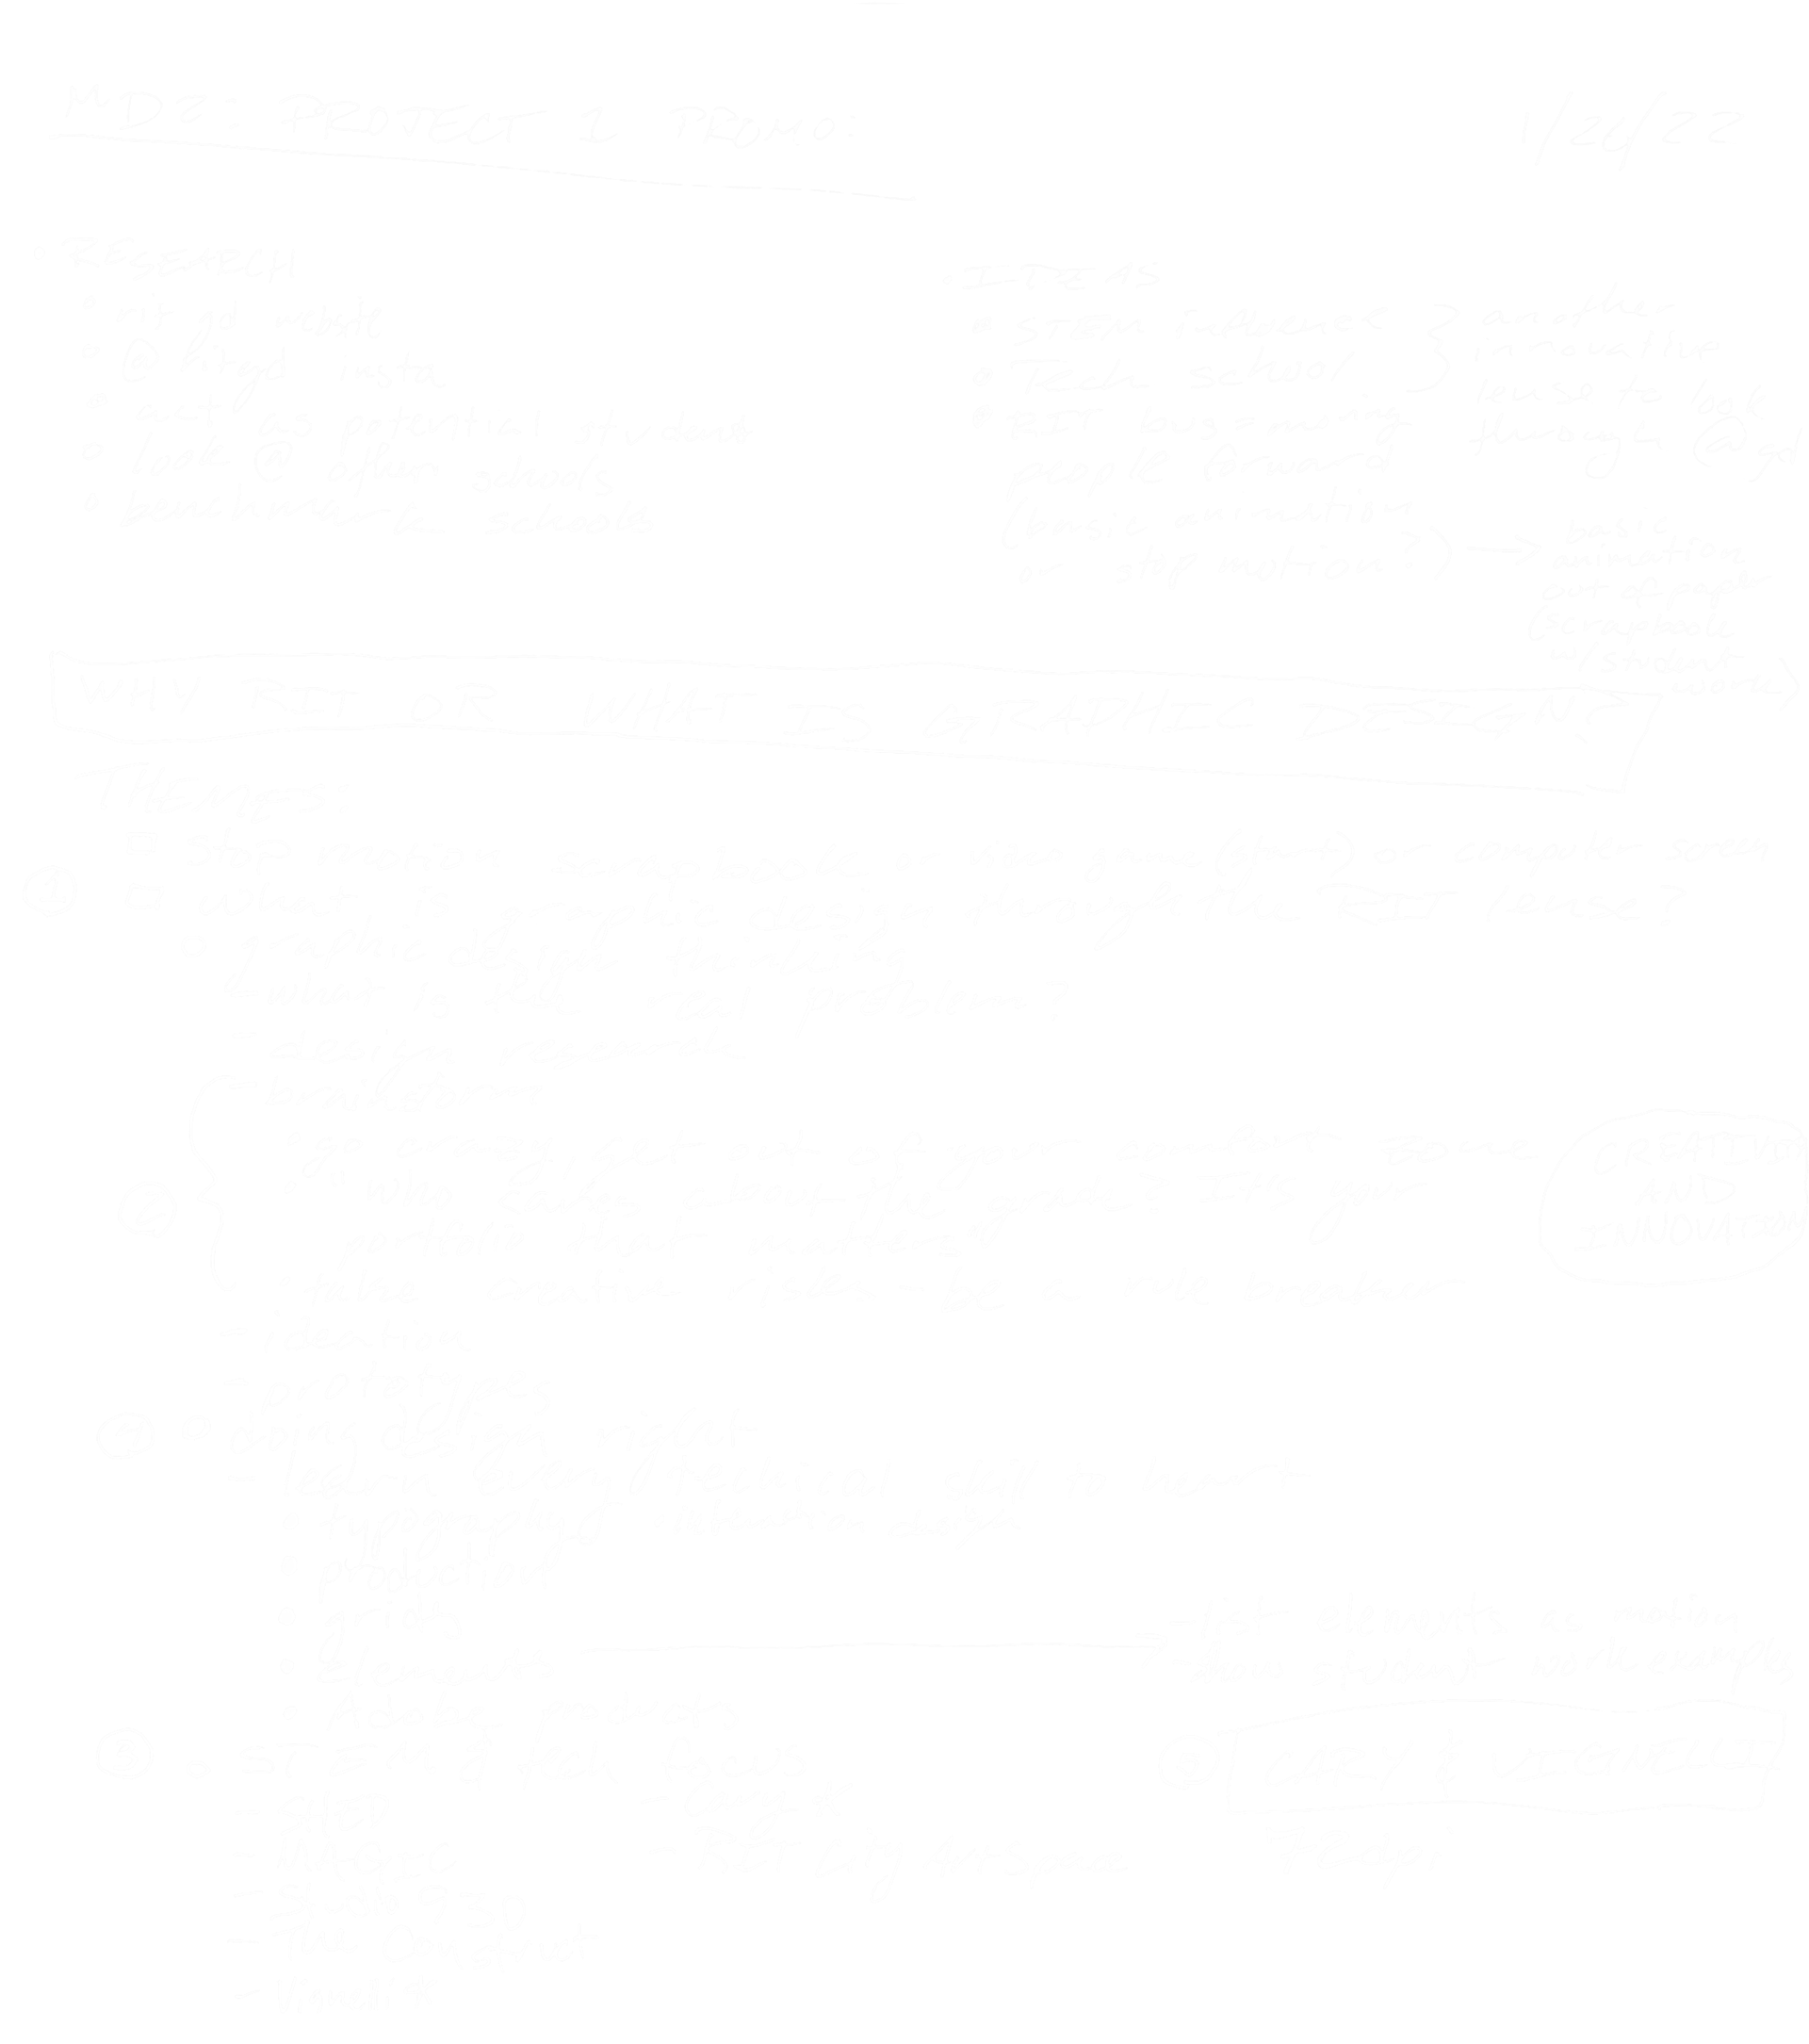 MD2: PROJECT 1 PROMO:
1/26/22
RESEARCH
rit gd website
@ritgd insta
act as potential students
look @ other schools
benchmark schools
ITEMS
STEM influence
Tech school
another innovative
lense to look
through @ gd
RIT bus = moving
people forward
(basic animation
or stop motion?)
basic
animation
out of paper
(scrapbook
w/student
work)
WHY RIT OR WHAT IS GRAPHIC DESIGN?
THEMES:
stop motion scrapbook or video game (start) or computer screen
1 what is graphic design through the RIT lense?
graphic design thinking
- what is the real problem?
- design research
- brainstorm
go crazy, get out of your comfort zone
2 "who cares about the grade? It's your
portfolio that matters"
take creative risks - be a rule breaker
CREATIVE
AND
INNOVATION
- ideation
- prototypes
doing design right
- learn every techical skill to heart
typography
production
grids
elements
- list elements as motion
- show student work examples
Adobe products
STEM & tech focus
CARY & VIGNELLI
- SHED
- Cary
- MAGIC
- RIT City Art Space
- Studio 930
- The Construct